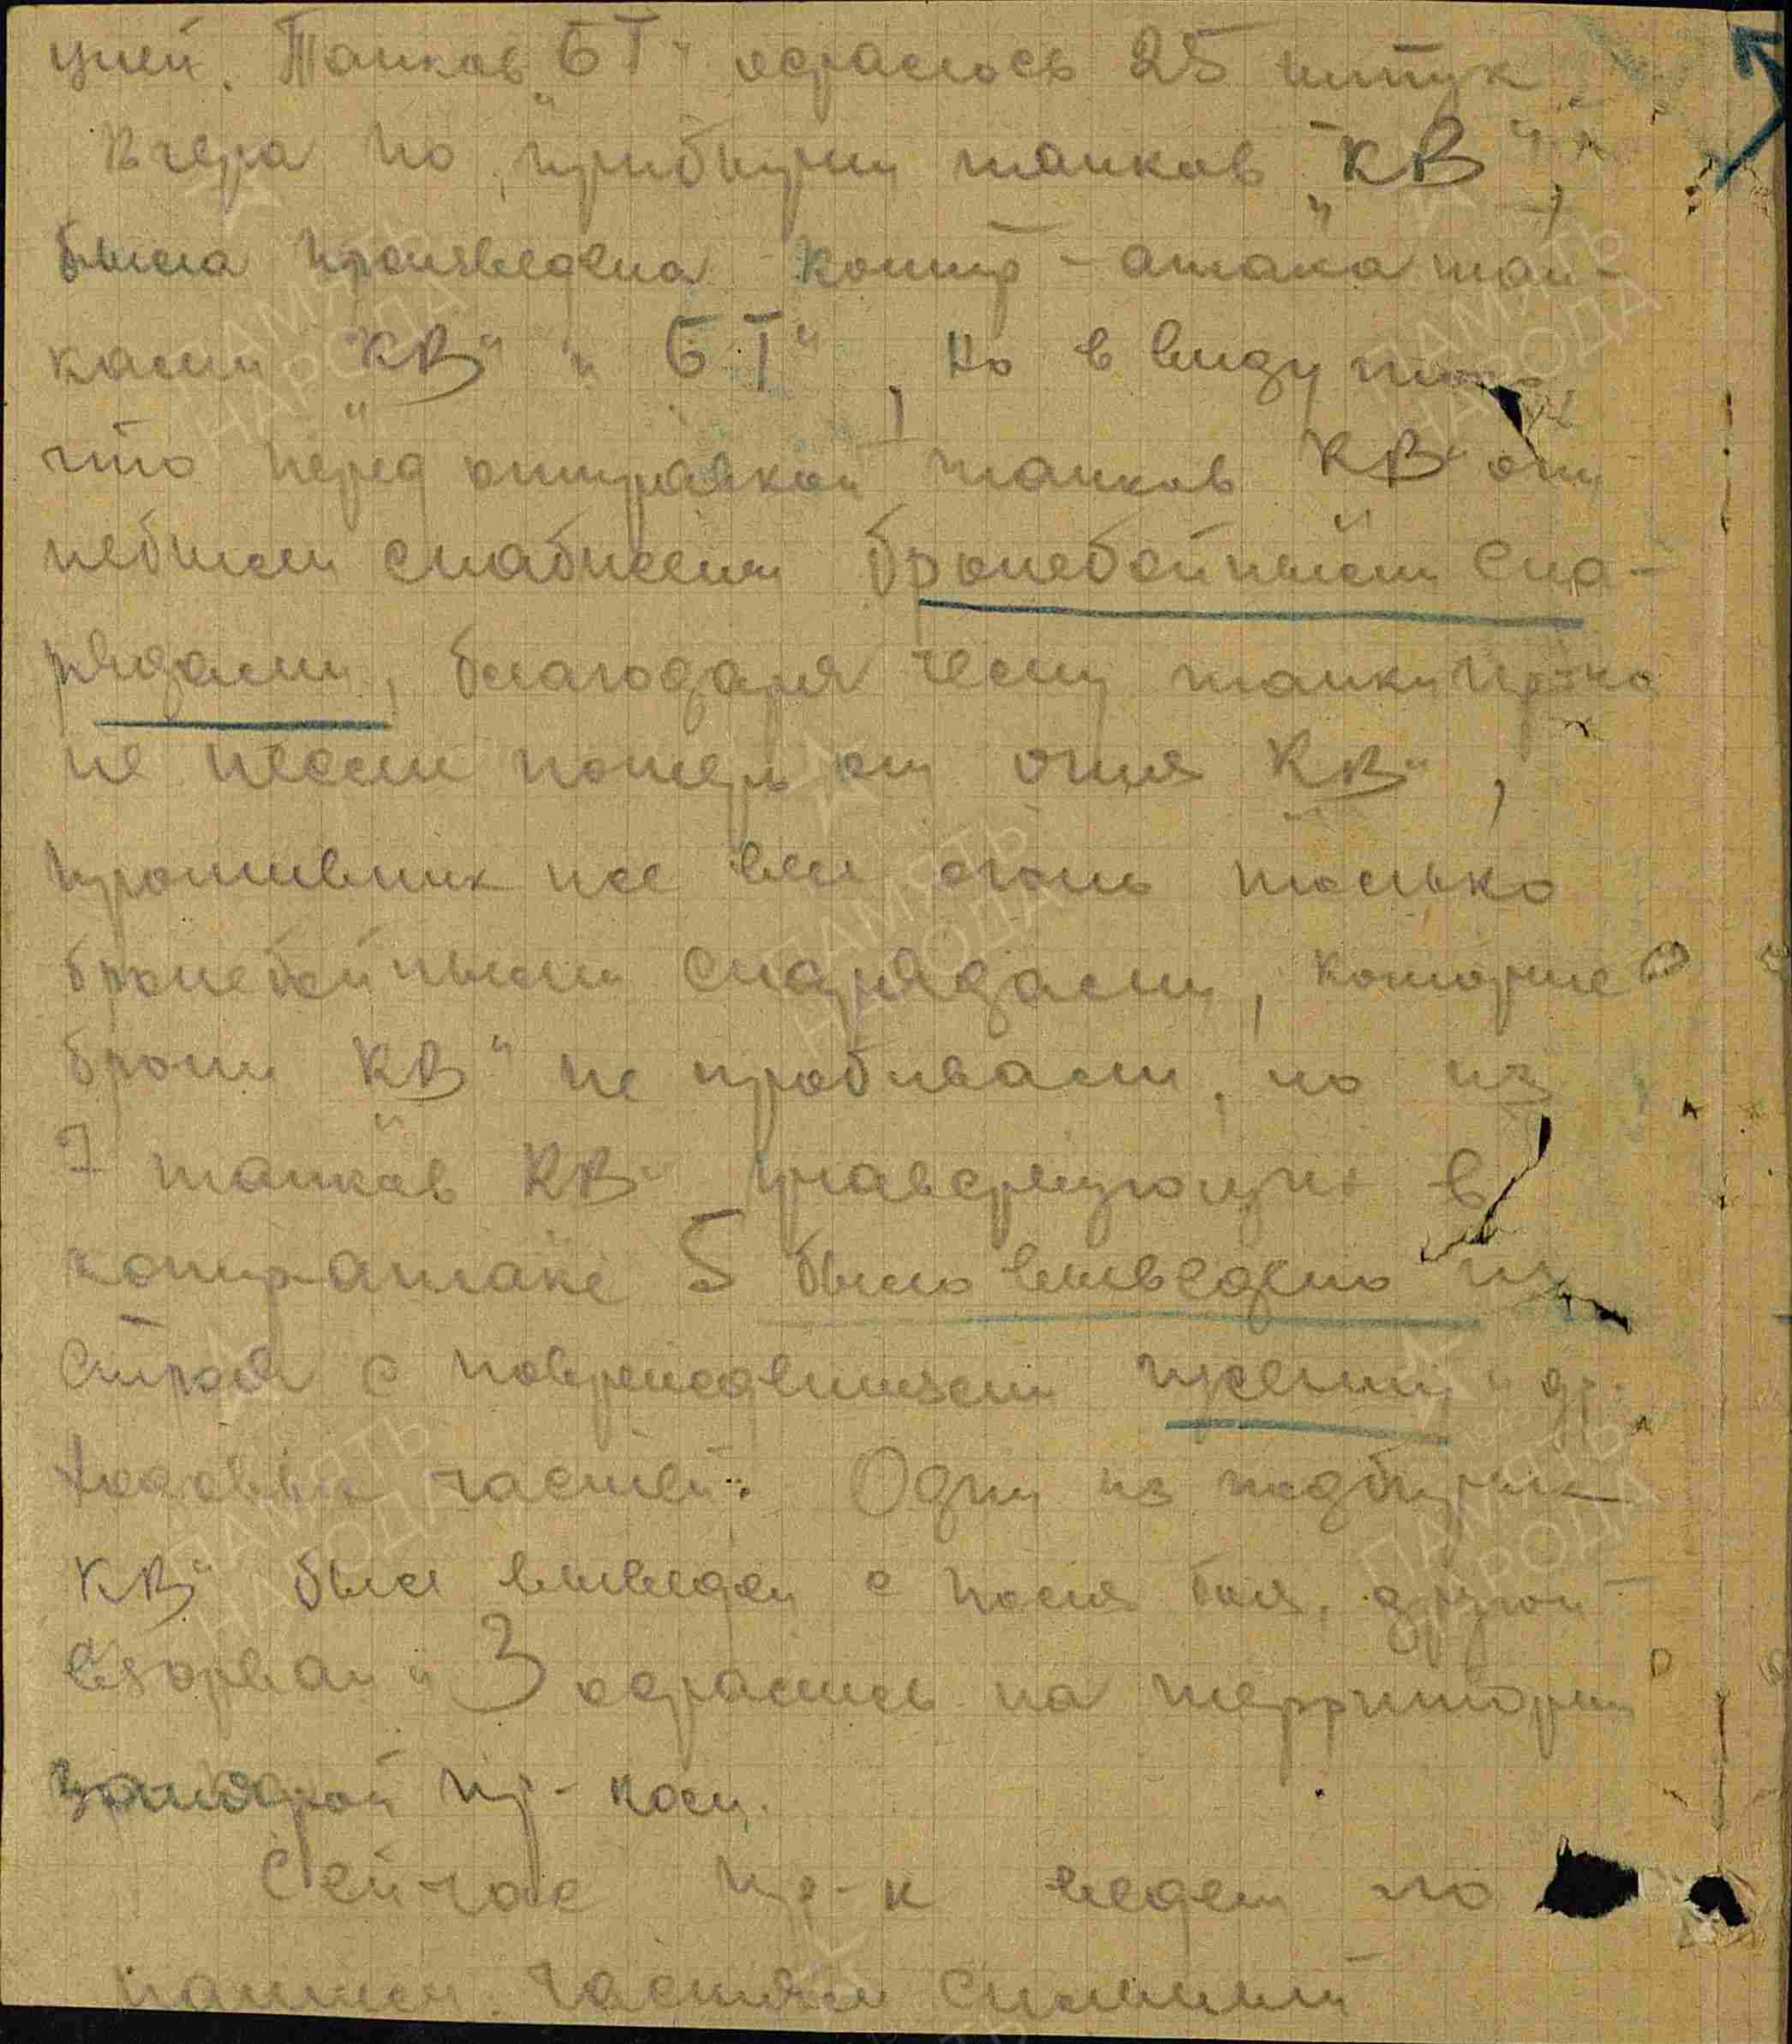 цией. Танков „БТ“ осталось 25 штук
Вчера по прибытии танков „КВ“,
была произведена контр-атака тан-
ками „КВ“ и „БТ“, но в виду того
что перед отправкой танков „КВ“ они
небыли снабжены бронебойными сна-
рядами, благодаря чему танки пр-ка
не несли потерь от огня „КВ“,
противник же вел огонь только
бронебойными снарядами, которые
брони „КВ“ не пробивали, но из
7 танков „КВ“ участвующих в
контр-атаке 5 было выведено из
строя с повреждением гусениц и др.
ходовых частей. Один из подбитых
„КВ“ был выведен с поля боя, другой
взорван и 3 остались на территории
занятой пр-ком.
Сейчас пр-к ведет по
нашим частям сильный
ПАМЯТЬ
НАРОДА
ПАМЯТЬ
НАРОДА
ПАМЯТЬ
НАРОДА
ПАМЯТЬ
НАРОДА
ПАМЯТЬ
НАРОДА